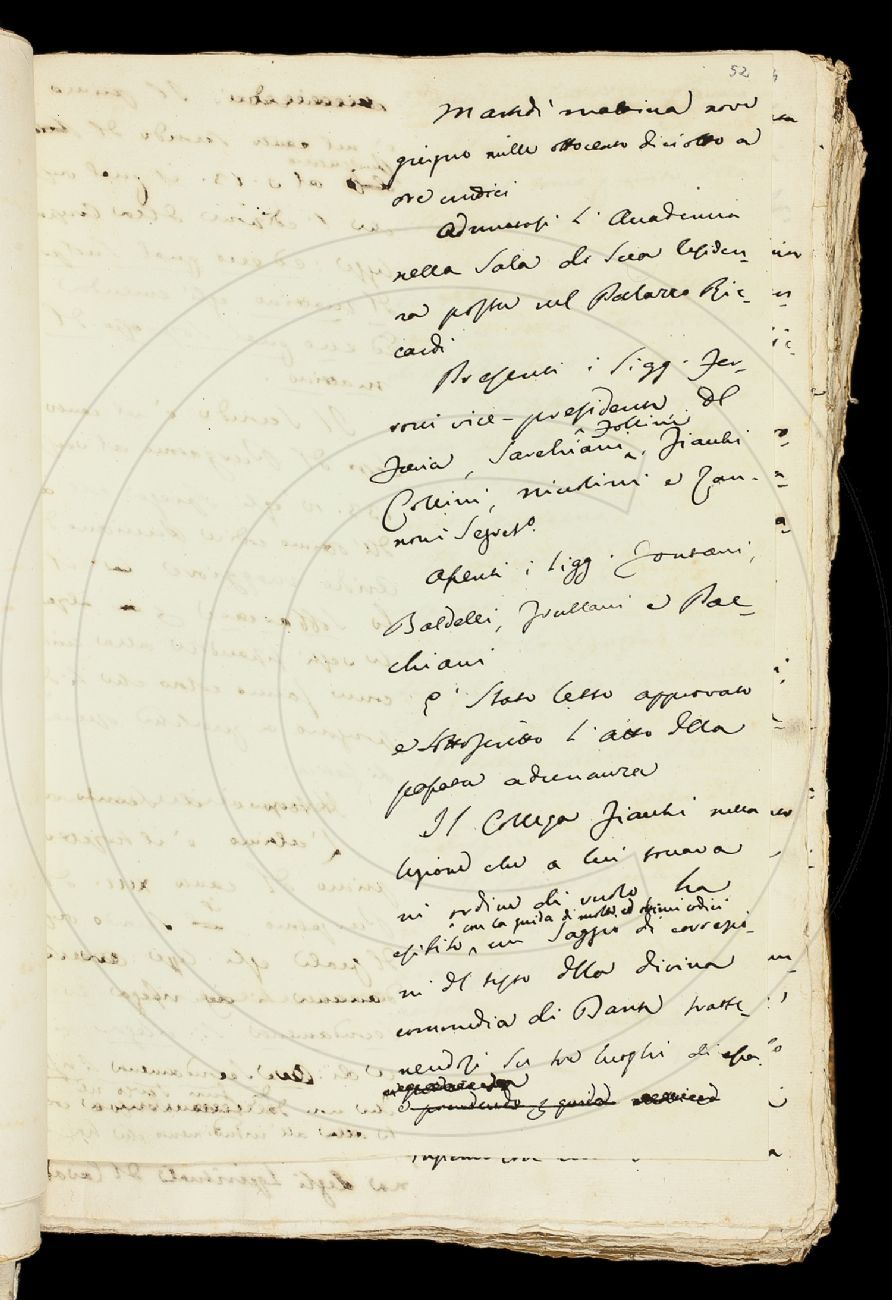 52
Martedì mattina nove
giugno mille ottocento diciotto a
ore undici
Adunatasi l'Accademia
nella Sala di Sua residen-
za posta nel Palazzo Ric-
cardi
Presenti i Sigg. Fer-
roni vice-presidente, Del
Follini
Furia, Sarchiani, Fiacchi
Collini, Niccolini e Zan-
noni Segret.o
Assenti i Sigg. Fontani,
Baldelli, Frullani e Pac-
chiani
E' stato letto approvato
e sottoscritto l'atto della
passata adunanza
Il Collega Fiacchi nella
lezione che a lui toccava
in ordine di ruolo ha
con la guida di molti ed ottimi codici
esibito un Saggio di correzio-
ni del testo della divina
commedia di Dante tratte-
nendosi su tre luoghi di essa.
e prendendo guida